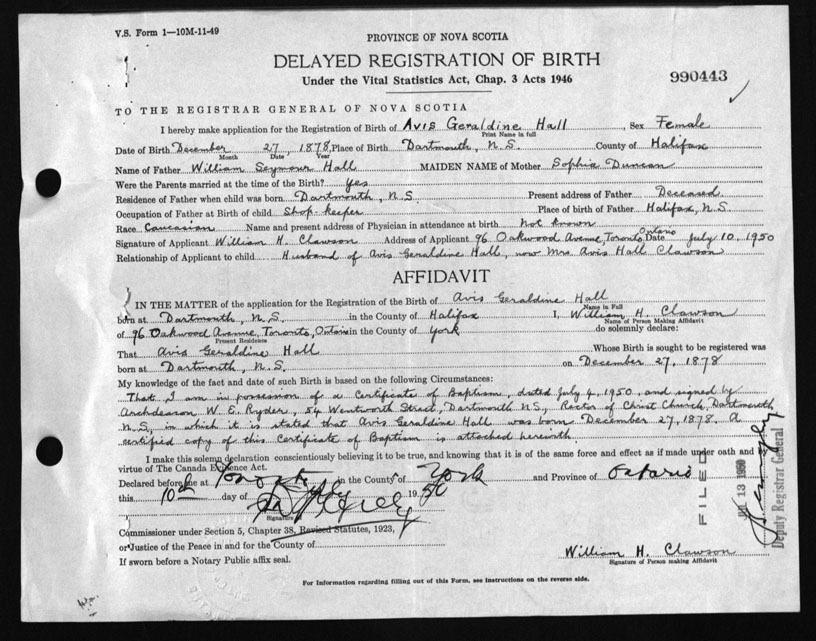 V.S. Form 1—10M-11-49
PROVINCE OF NOVA SCOTIA
DELAYED REGISTRATION OF BIRTH
Under the Vital Statistics Act, Chap. 3 Acts 1946
990443
TO THE REGISTRAR GENERAL OF NOVA SCOTIA
I hereby make application for the Registration of Birth of Avis Geraldine Hall, Sex Female
Print Name in full
Date of Birth December 27, 1878, Place of Birth Dartmouth, N.S. County of Halifax
Month Date Year
Name of Father William Seymour Hall MAIDEN NAME of Mother Sophia Duncan
Were the Parents married at the time of the Birth? Yes
Residence of Father when child was born Dartmouth, N.S. Present address of Father Deceased
Occupation of Father at Birth of child Shop-keeper Place of birth of Father Halifax, N.S.
Race Caucasian Name and present address of Physician in attendance at birth Not known
Signature of Applicant William H. Clawson Address of Applicant 96 Oakwood Avenue, Toronto, Ontario Date July 10, 1950
Relationship of Applicant to child Husband of Avis Geraldine Hall, now Mrs Avis Hall Clawson
AFFIDAVIT
IN THE MATTER of the application for the Registration of the Birth of Avis Geraldine Hall
Name in Full
born at Dartmouth, N.S. in the County of Halifax I, William H. Clawson
Name of Person Making Affidavit
of 96 Oakwood Avenue, Toronto, Ontario in the County of York do solemnly declare:
Present Residence
That Avis Geraldine Hall Whose Birth is sought to be registered was
born at Dartmouth, N.S. on December 27, 1878
My knowledge of the fact and date of such Birth is based on the following Circumstances:
That I am in possession of a Certificate of Baptism, dated July 4, 1950, and signed by
Archdeacon W. E. Ryder, 54 Wentworth Street, Dartmouth N.S., Rector of Christ Church, Dartmouth,
N.S., in which it is stated that Avis Geraldine Hall was born December 27, 1878. A
certified copy of this Certificate of Baptism is attached herewith.
I make this solemn declaration conscientiously believing it to be true, and knowing that it is of the same force and effect as if made under oath and by
virtue of The Canada Evidence Act.
Declared before me at Toronto in the County of York and Province of Ontario
this 10th day of July 1950
Signature
Commissioner under Section 5, Chapter 38, Revised Statutes, 1923,
or Justice of the Peace in and for the County of
If sworn before a Notary Public affix seal.
William H. Clawson
Signature of Person making Affidavit
For Information regarding filling out of this Form, see instructions on the reverse side.
FILED
JUL 13 1950
Deputy Registrar General